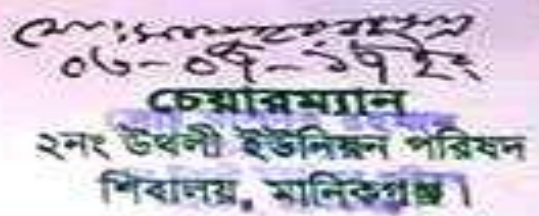 ০৬-০৭-১৭ ইং
চেয়ারম্যান
২নং উথলী ইউনিয়ন পরিষদ
শিবালয়, মানিকগঞ্জ।